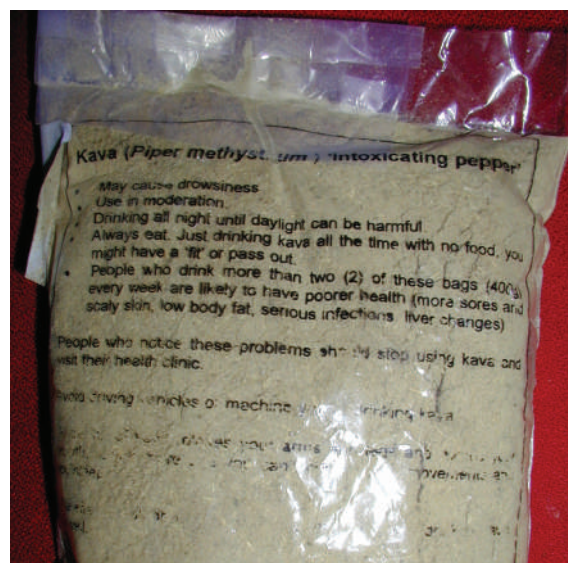 Kava (Piper methyst. um ) 'Intoxicating pepper'
• May cause drowsiness
• Use in moderation.
• Drinking all night until daylight can be harmful
• Always eat. Just drinking kava all the time with no food, you
might have a 'fit' or pass out.
• People who drink more than two (2) of these bags (400g)
every week are likely to have poorer health (more sores and
scaly skin, low body fat, serious infections, liver changes)
People who notice these problems should stop using kava and
visit their health clinic.
Avoid driving vehicles or machine drinking kava
your arms and
can movements